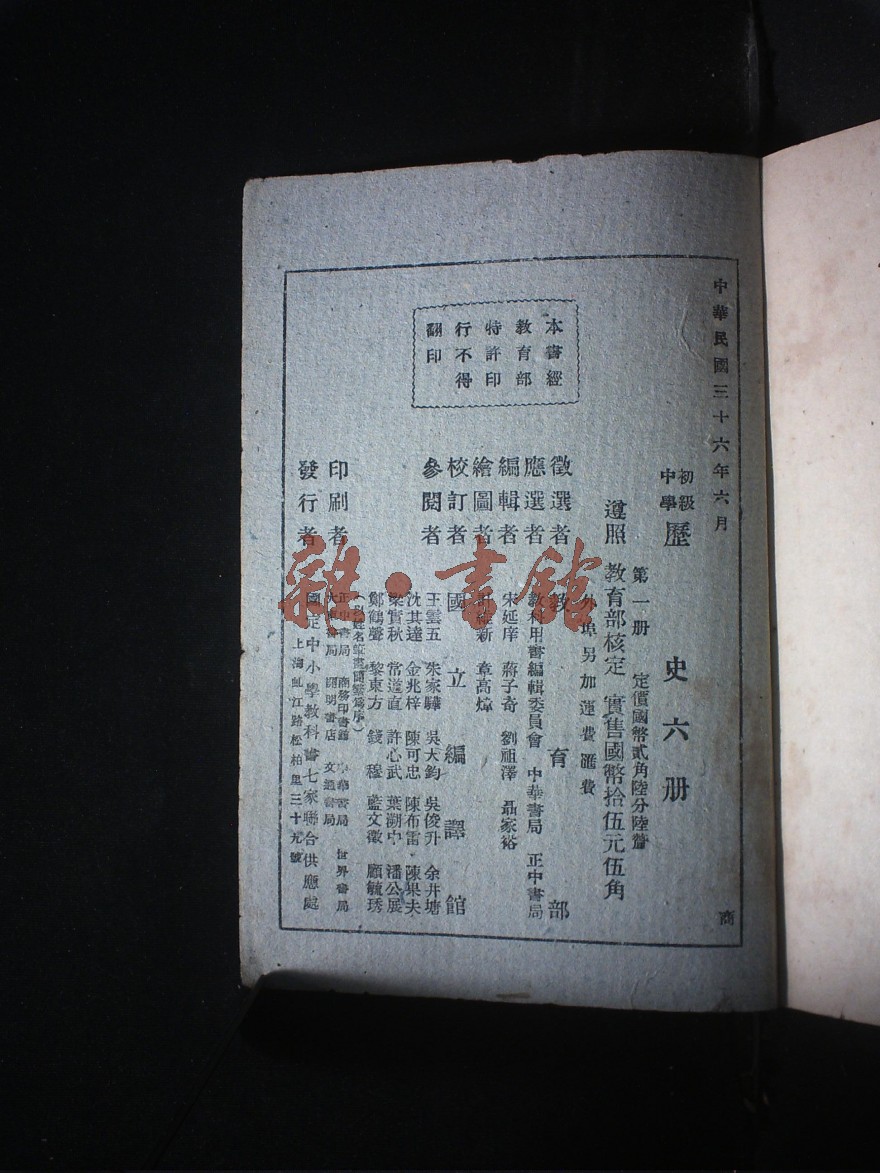 中華民國三十六年六月
商
初級中學 歷史六册
第一册 定價國幣貳角陸分陸釐
遵照教育部核定 實售國幣拾伍元伍角
外埠另加運費滙費
本書經
教育部
特許印
行不得
翻印
徵選者 教育部
應選者 教科用書編輯委員會 中華書局 正中書局
編輯者 宋延庠 蔣子奇 劉祖澤 聶家裕
繪圖者 維新 章高煒
校訂者 國立編譯館
參閱者 王雲五 朱家驊 吳大鈞 吳俊升 余井塘
沈其達 金兆梓 陳可忠 陳布雷 陳果夫
梁實秋 常道直 許心武 葉溯中 潘公展
鄭鶴聲 黎東方 錢穆 藍文徵 顧毓琇
(以姓名筆畫簡繁爲序)
印刷者 正中書局 商務印書館 中華書局 世界書局
大東書局 開明書店 文通書局
發行者 國定中小學教科書七家聯合供應處
上海虬江路松柏里三十九號
雜·書館